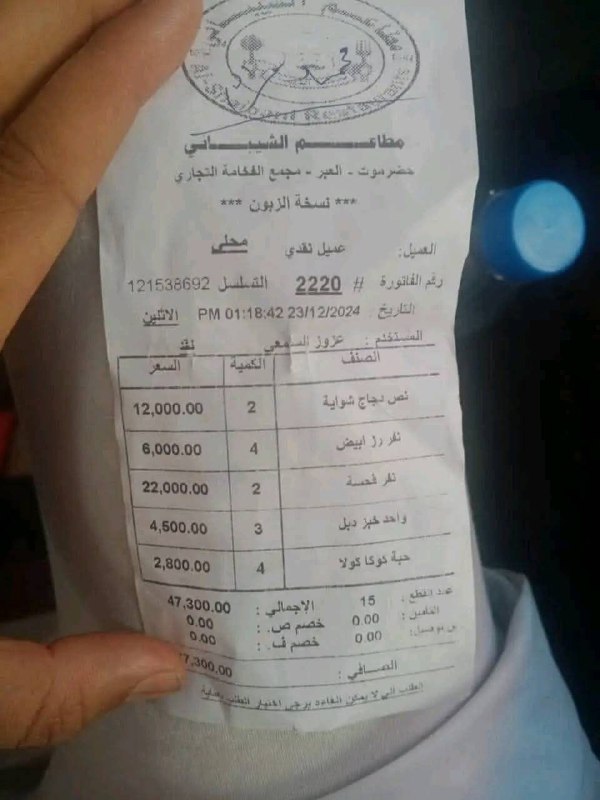 مطاعم الشيباني
حضرموت - العبر - مجمع الفخامة التجاري
*** نسخة الزبون ***
العميل: عميل نقدي محلي
رقم الفاتورة # 2220 التسلسل 121538692
التاريخ : 23/12/2024 01:18:42 PM الاثنين
المستخدم : عزوز السمعي نقد
الصنف الكمية السعر
نص دجاج شواية 2 12,000.00
نفر رز ابيض 4 6,000.00
نفر فحسة 2 22,000.00
واحد خبز دبل 3 4,500.00
حبة كوكا كولا 4 2,800.00
عدد القطع : 15 الاجمالي : 47,300.00
0.00 خصم ص. : 0.00
0.00 خصم ف. : 0.00
الصـافي : 7,300.00
الطلب لا يمكن برجى اختيار الطلب بعناية